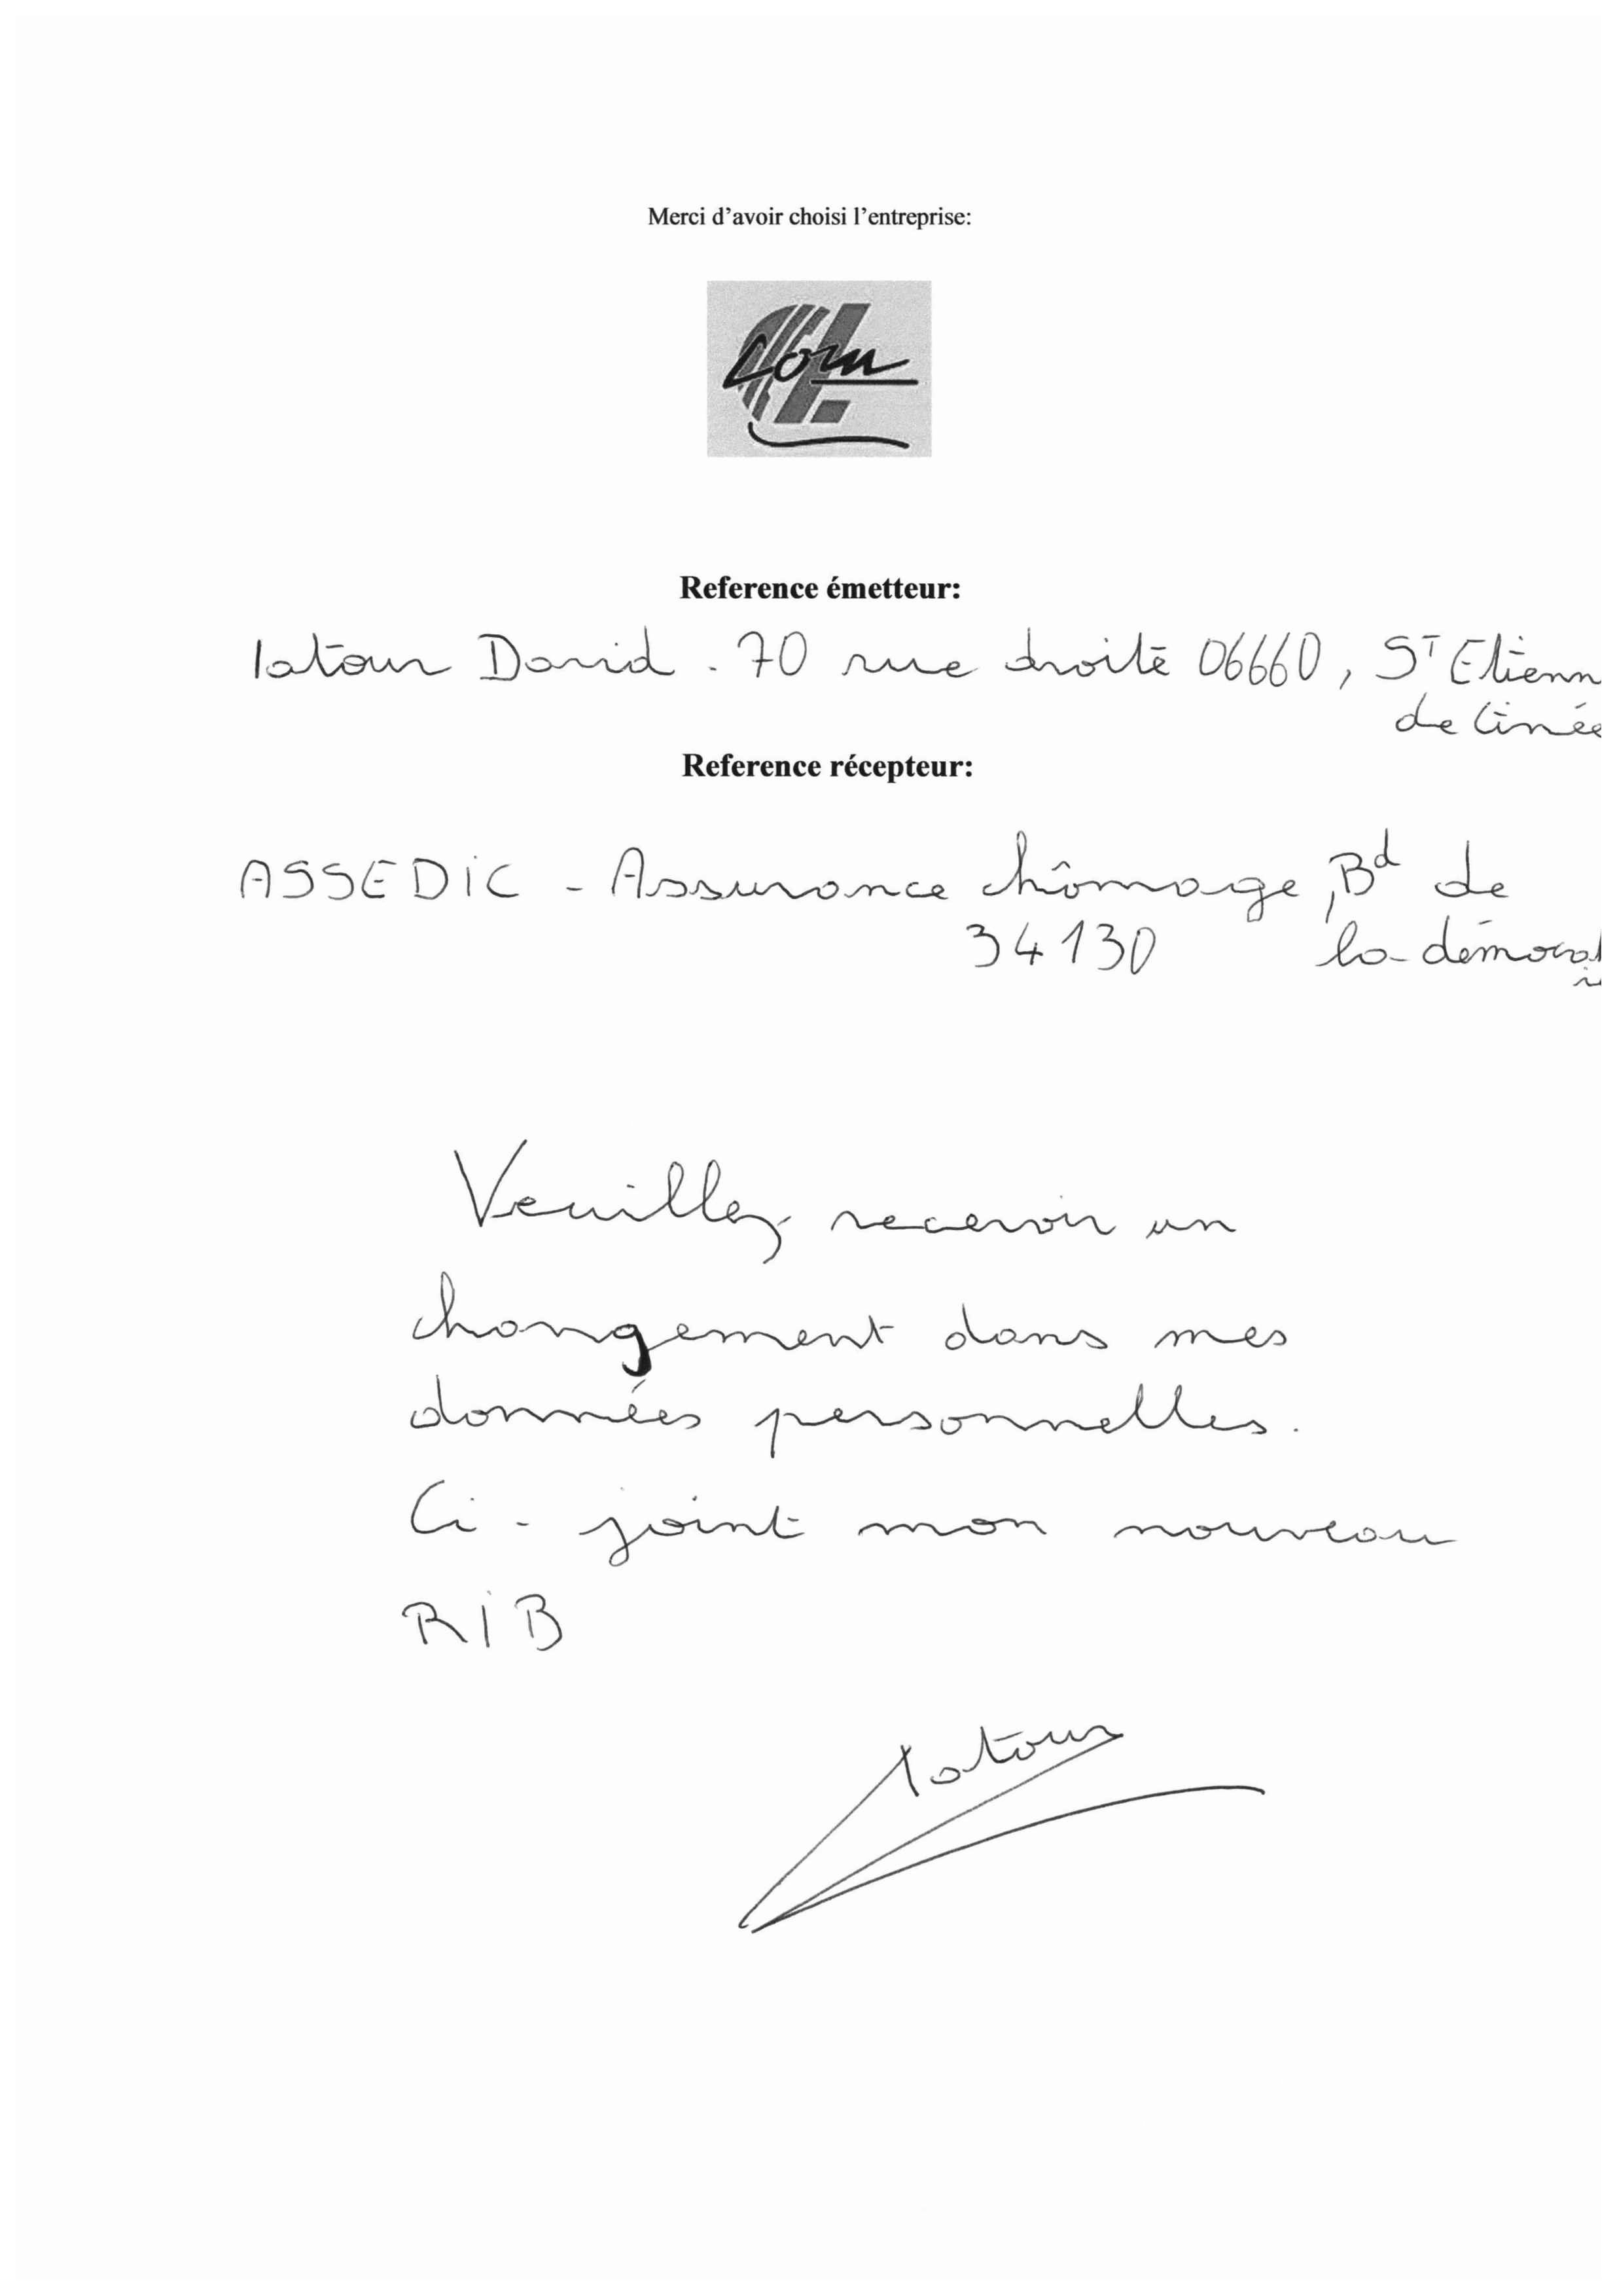 Merci d'avoir choisi l'entreprise:
Com
Reference émetteur:
latour David. 70 rue droite 06660, S^T Etienn
de Tinée
Reference récepteur:
ASSEDIC - Assurance chômage, B^d de
34130 la démocrat
Veuillez recevoir un
changement dans mes
données personnelles.
Ci-joint mon nouveau
RIB
latour